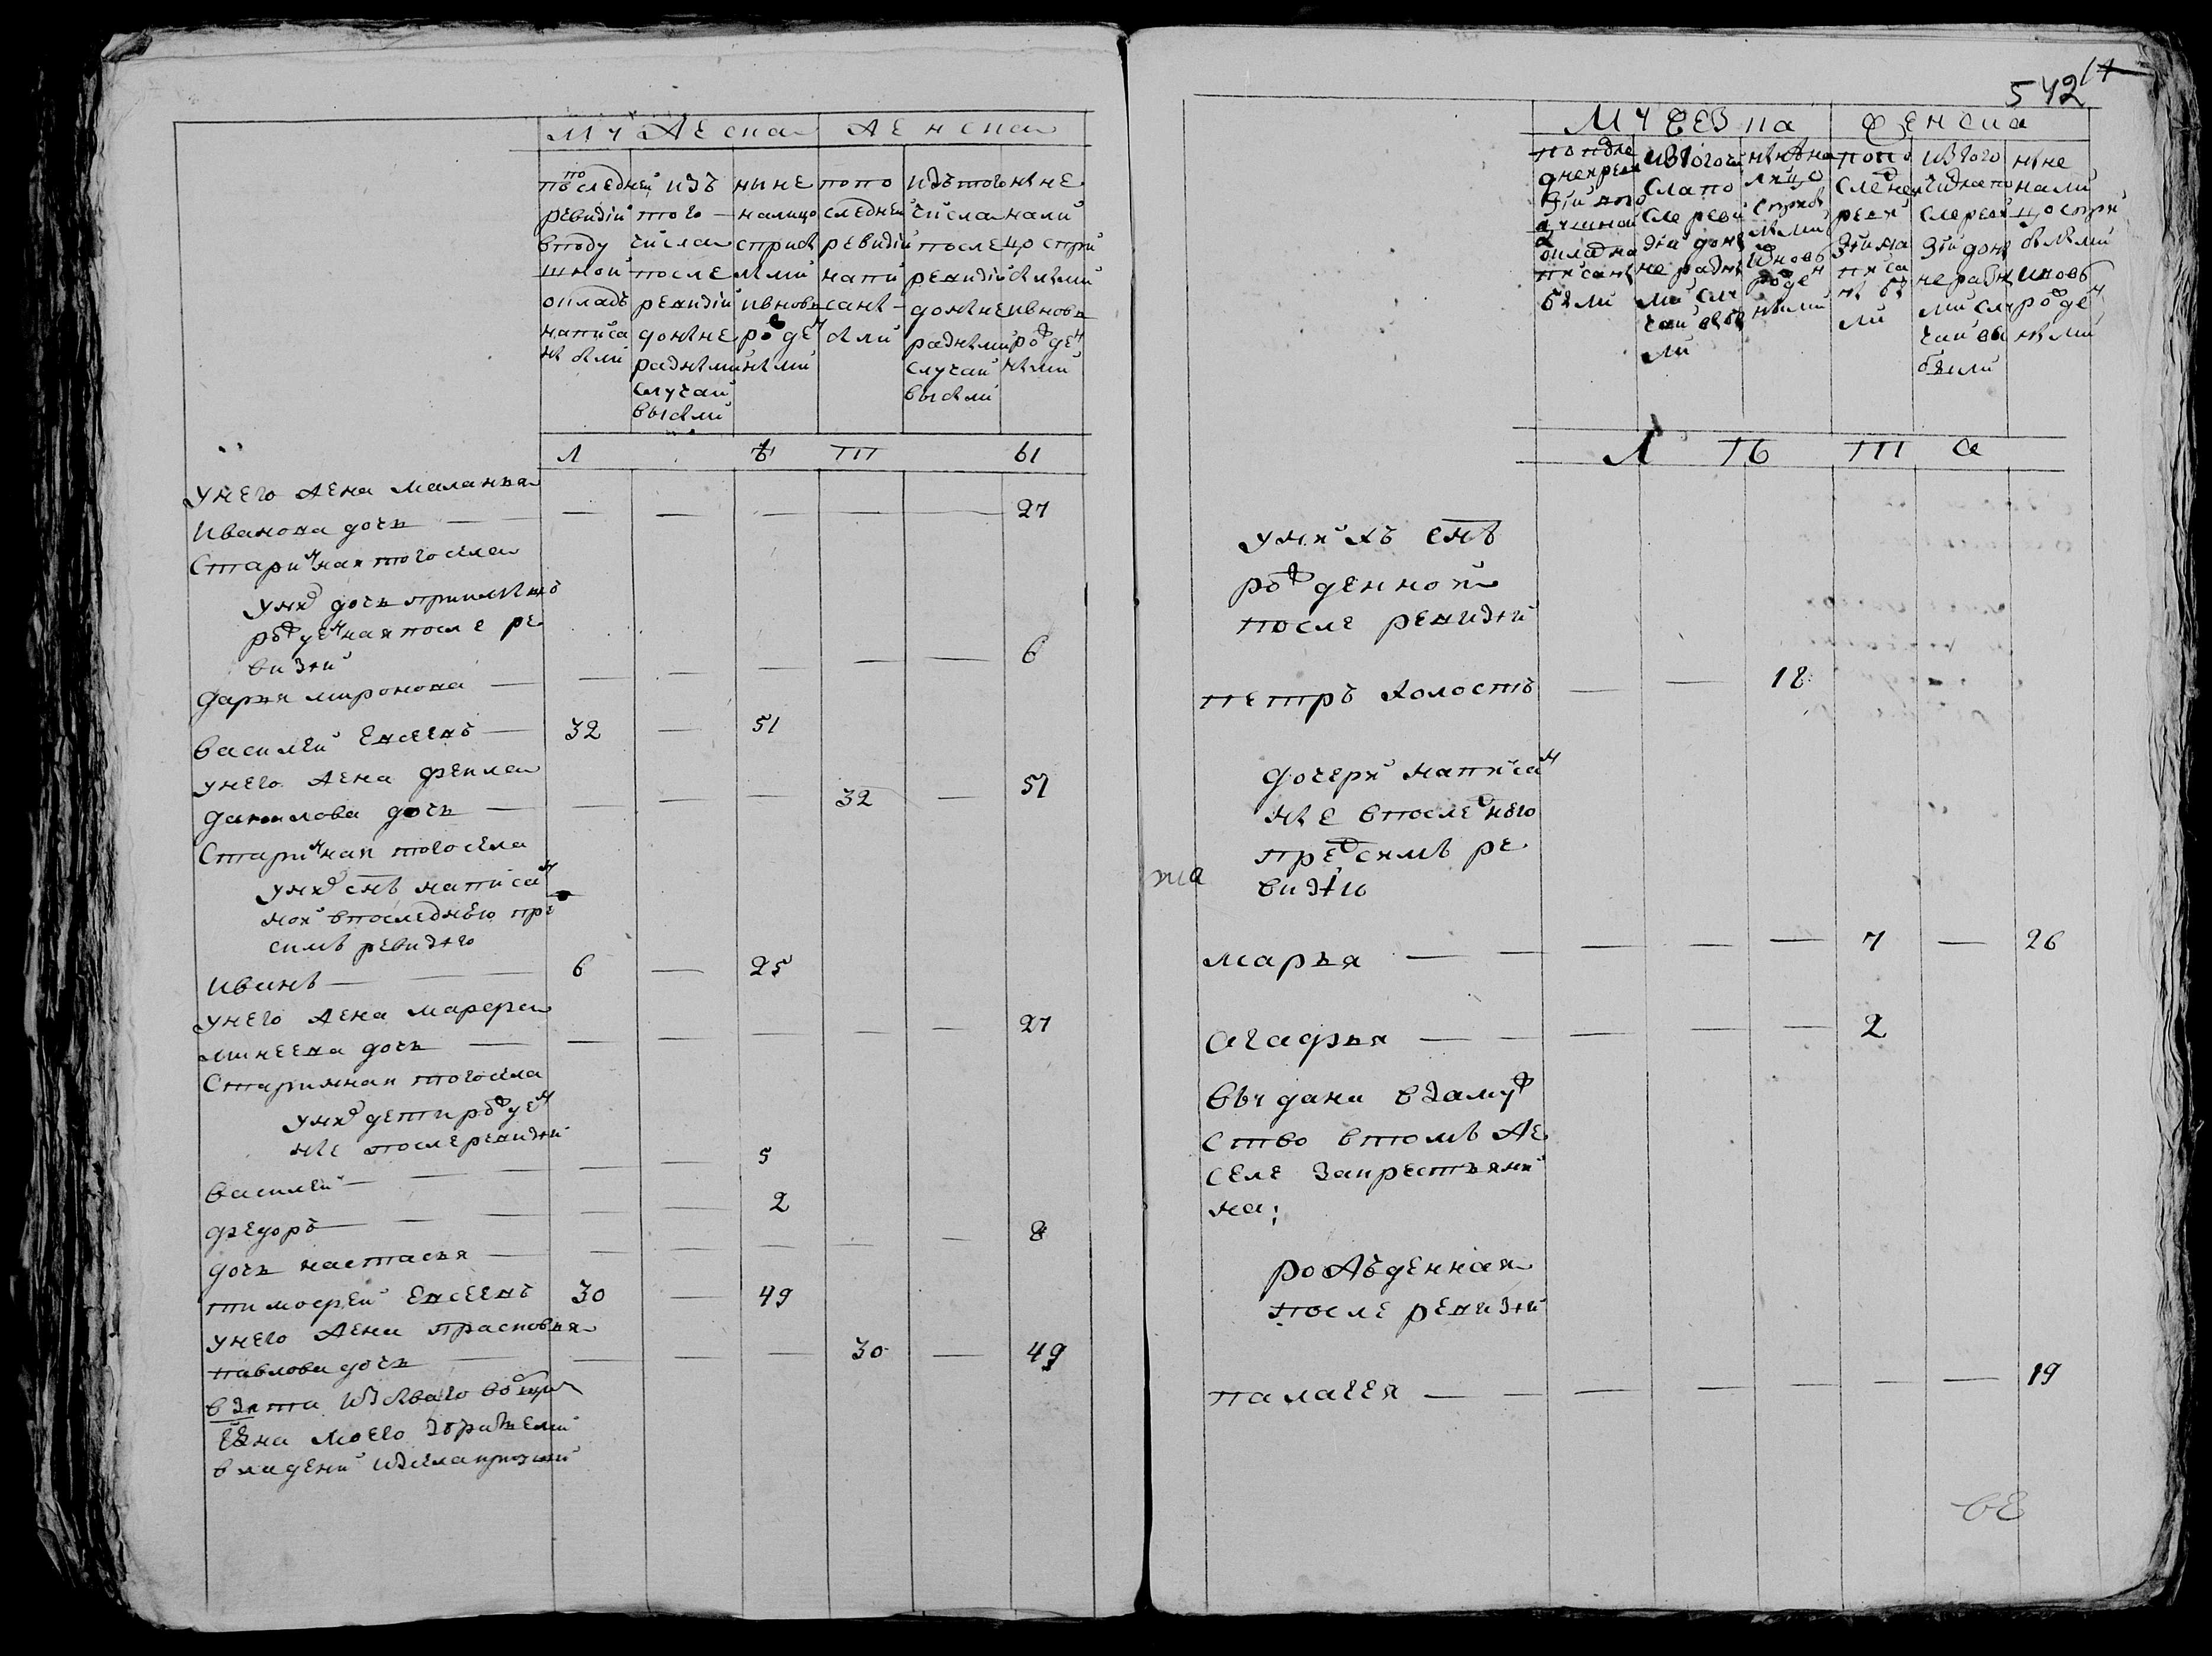 Мужеска женска
по последней ревизии в подушной оклад написаны были
изъ того числа после ревизии до ныне разными случаи выбыли
ныне на лицо с прибылыми и вновь рожденными
по последней ревизии написаны были
изъ того числа после ревизии до ныне разными случаи выбыли
ныне на лицо с прибылыми и вновь рожденными
Л ъ т ы
у него жена маланья
Иванова дочь — 27
Старинная того села
у них дочь
рожденная после ре
визии
дарья миронова — 6
василей Евсеевъ — 32 — 51
у него жена фекла
данилова дочь — 32 — 51
Старинная того села
у них снъ написан
ной в последнею пре
симъ ревизию
иванъ — 6 — 25
у него жена марфа
минеева дочь — 27
Старинная того села
у них дети рожден
ные после ревизии
василей — 5
федоръ — 2
дочь настасья — 8
тимофей Евсеевъ 30 — 49
у него жена прасковья
павлова дочь — 30 — 49
взята
моего
владени
542
Мужеска женска
по последней ревизии в подушной оклад написаны были
из того числа после ревизии до ныне разными случаи выбыли
ныне на лицо с прибылыми и вновь рожденными
по последней ревизии написаны были
из того числа после ревизии до ныне разными случаи выбыли
ныне на лицо с прибылыми и вновь рожденными
Л ъ т а
у нихъ снъ
рожденной
после ревизии
петръ холостъ — 18
дочери написан
ные в последнею
пред симъ ре
визию
марья — 7 — 26
агафья — 2
выдана взамуж
ство в томъ же
селе за крестьяни
на;
рожъденная
после ревизии
палагея — 19